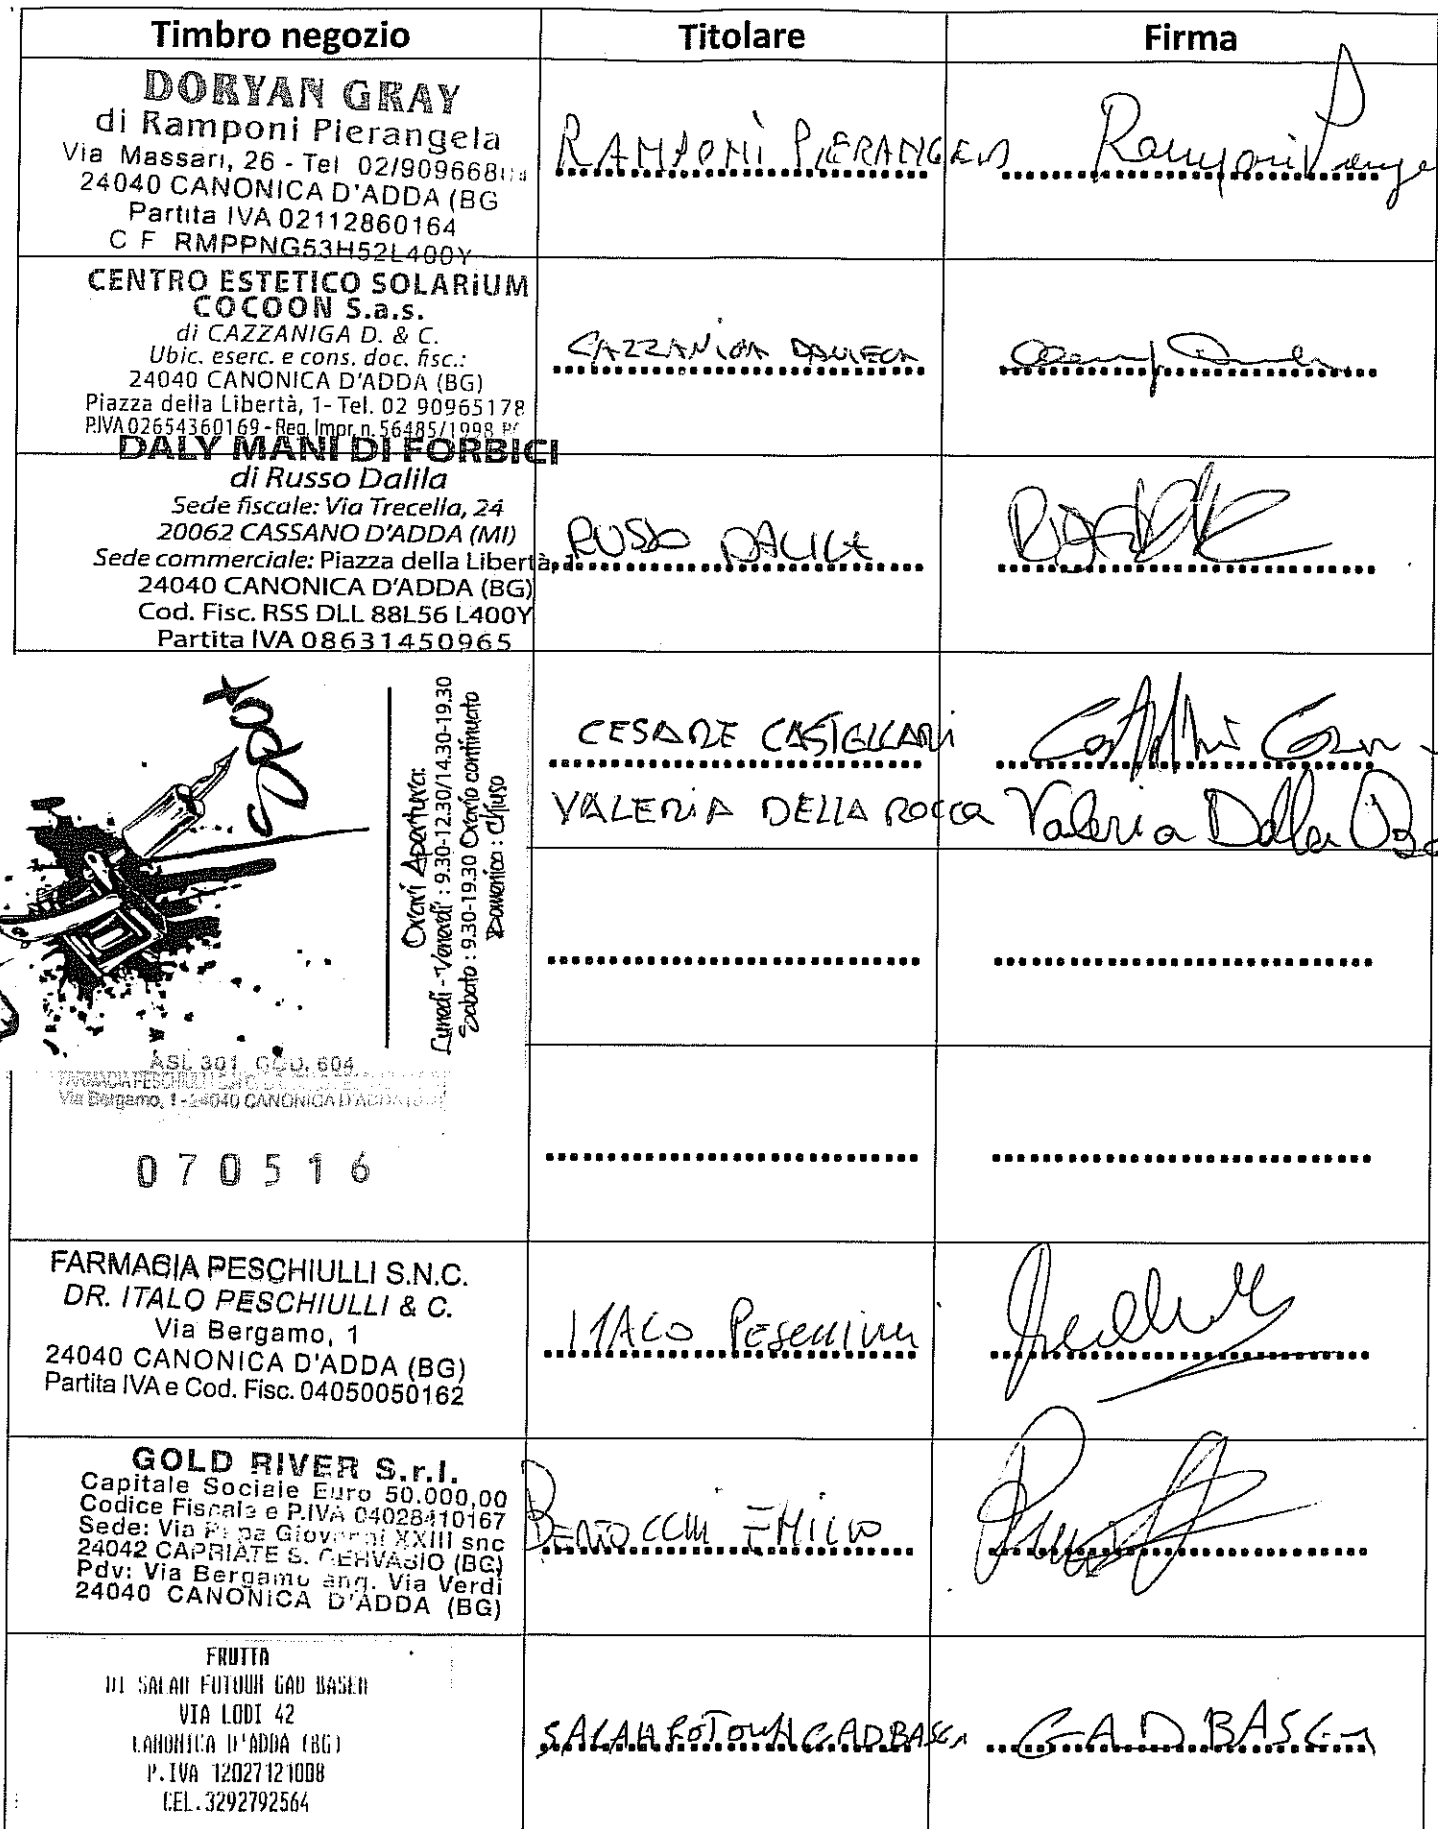 Timbro negozio Titolare Firma
DORYAN GRAY
di Ramponi Pierangela
Via Massari, 26 - Tel 02/909668
24040 CANONICA D'ADDA (BG
Partita IVA 02112860164
C F RMPPNG53H52L400Y
RAMPONI PIERANGELA
Ramponi
CENTRO ESTETICO SOLARIUM
COCOON S.a.s.
di CAZZANIGA D. & C.
Ubic. eserc. e cons. doc. fisc.:
24040 CANONICA D'ADDA (BG)
Piazza della Libertà, 1- Tel. 02 90965178
P.IVA 02654360169 - Reg. Impr. n. 56485/1998
CAZZANIGA DANIELA
DALY MANI DI FORBICI
di Russo Dalila
Sede fiscale: Via Trecella, 24
20062 CASSANO D'ADDA (MI)
Sede commerciale: Piazza della Libertà, 1
24040 CANONICA D'ADDA (BG)
Cod. Fisc. RSS DLL 88L56 L400Y
Partita IVA 08631450965
RUSSO DALILA
Spot
Orari Apertura:
Lunedì - Venerdì : 9.30-12.30/14.30-19.30
Sabato : 9.30-19.30 Orario continuato
Domenica : Chiuso
CESARE CASTELLARI
VALERIA DELLA ROCCA
Valeria Della
ASL 301 COD. 604
FARMACIA PESCHIULLI
Via Bergamo, 1 - 24040 CANONICA D'ADDA
070516
FARMACIA PESCHIULLI S.N.C.
DR. ITALO PESCHIULLI & C.
Via Bergamo, 1
24040 CANONICA D'ADDA (BG)
Partita IVA e Cod. Fisc. 04050050162
ITALO PESCHIULLI
GOLD RIVER S.r.l.
Capitale Sociale Euro 50.000,00
Codice Fiscale e P.IVA 04028410167
Sede: Via Papa Giovanni XXIII snc
24042 CAPRIATE S. GERVASIO (BG)
Pdv: Via Bergamo ang. Via Verdi
24040 CANONICA D'ADDA (BG)
EMILIO
FRUTTA
DI SALAH FUTOUH GAD BASEM
VIA LODI 42
CANONICA D'ADDA (BG)
P.IVA 12027121008
CEL.3292792564
SALAH FOTOUH GAD BASEM
GAD BASEM